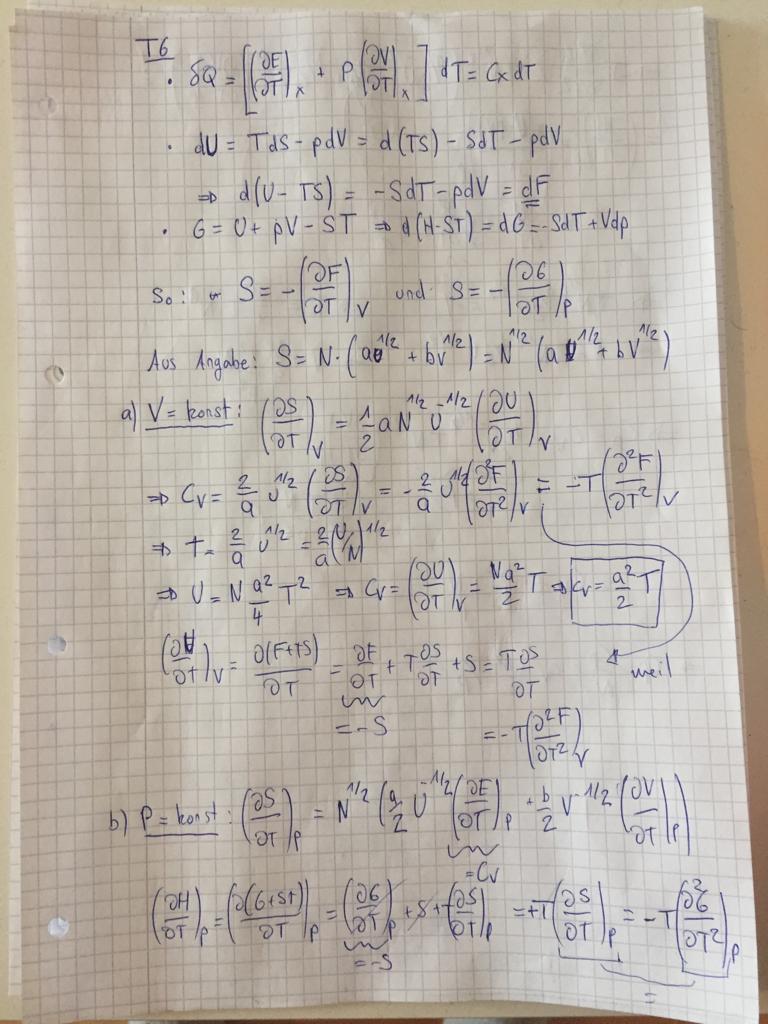 T6
• δQ = [(∂E/∂T)_x + P (∂V/∂T)_x] dT = C_x dT
• dU = TdS - pdV = d(TS) - SdT - pdV
⇒ d(U - TS) = -SdT - pdV = dF
• G = U + pV - ST ⇒ d(H-ST) = dG = -SdT + Vdp
So: S = -(∂F/∂T)_V und S = -(∂G/∂T)_P
Aus Angabe: S = N·(au^1/2 + bv^1/2) = N^1/2 (aU^1/2 + bV^1/2)
a) V = konst: (∂S/∂T)_V = 1/2 a N^1/2 U^-1/2 (∂U/∂T)_V
⇒ C_V = 2/a U^1/2 (∂S/∂T)_V = -2/a U^1/2 (∂²F/∂T²)_V = -T(∂²F/∂T²)_V
⇒ T = 2/a U^1/2 = 2/a (U/N)^1/2
⇒ U = N a²/4 T² ⇒ C_V = (∂U/∂T)_V = Na²/2 T ⇒ c_V = a²/2 T
(∂U/∂T)_V = ∂(F+TS)/∂T = ∂F/∂T + T ∂S/∂T + S = T ∂S/∂T weil
= -S = -T(∂²F/∂T²)_V
b) P = konst: (∂S/∂T)_P = N^1/2 (a/2 U^-1/2 (∂E/∂T)_P + b/2 V^-1/2 (∂V/∂T)_P)
= C_V
(∂H/∂T)_P = (∂(G+ST)/∂T)_P = (∂G/∂T)_P + S + T(∂S/∂T)_P = +T(∂S/∂T)_P = -T(∂²G/∂T²)_P
= -S =